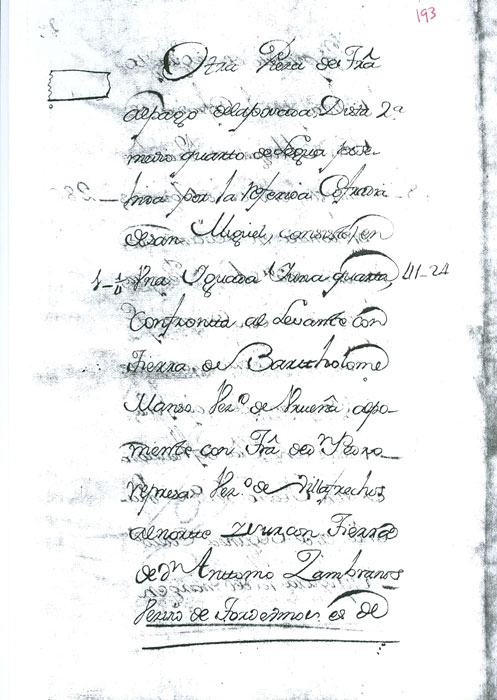 193
Otra Pieza de trâ
al pago de la pouada Dista 2ª
medio quarto de legua poseh
hida por la referida Cofradia
de San Miguel, consiste en
1-¼ Una Iguada i una quarta, 41-24
Confronta al Levante con
tierra de Bartholome
Manso Vezº de Vruenâ, alpo-
mente con trâ de dn Pedro
represa Vezº de Villafrechos
al norte i sur con tierras
de dn Antonio Zambranos
Vezino de es de